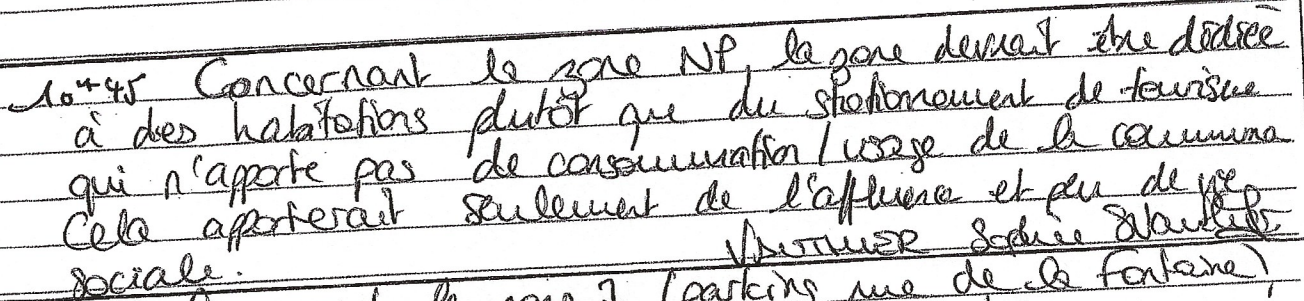 10H45 Concernant la zone NP, la zone devrait être dédiée
à des habitations plutôt que du stationnement de tourisme
qui n'apporte pas de consommation / usage de la commune
Cela apporterait seulement de l'affluence et peu de vie
sociale. VAUTHIER Sophie
(parking rue de la fontaine)